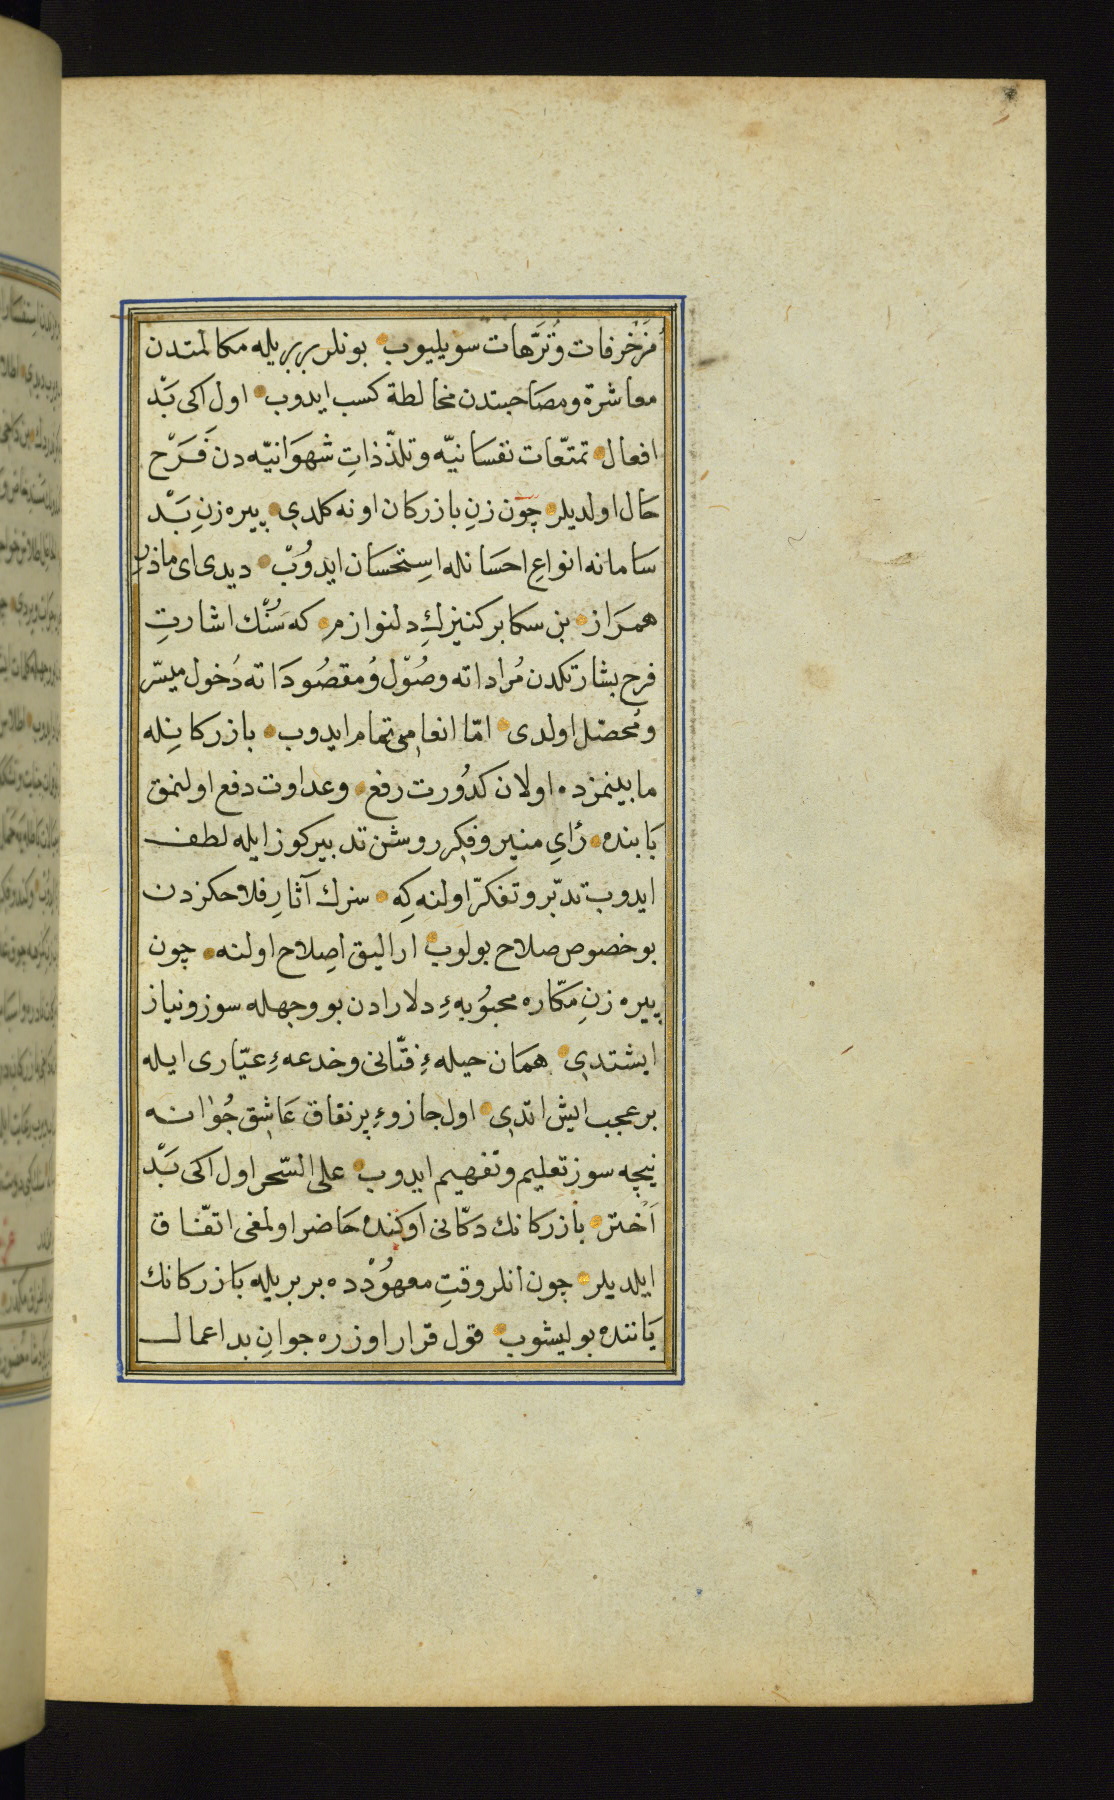 مُزَخْرفات وُتُرَّهات سويليوب بونلر بربريله مكالمتدن
معاشرة ومصَاحبتدن مخالطة كسب ايدوب اول اكى بَدْ
افعال تمتّعات نفسَانيّه وتلذّذاتِ شهوَانيّه دن فَرَحْ
حَال اولديلر چون زنِ بازركان اونه كلدى پيره زنِ بَدْ
سامانه انواعِ احسَانله اسِتحسَان ايدوُبْ ديدى اى مادرِ
همرَاز بن سكا بر كنيزكِ دلنوازم كه سَنُك اشارتِ
فرح بشارتكدن مُراداته وصُوْل وُمقصُودَاته دُخول ميسّر
ومُحصّل اولدى امّا انعامى تمام ايدوب بازركانِله
مابينمزده اولان كدُورت رفع وعداوت دفع اولنمق
بَابنده رَأىِ منير وفكِر روشن تدبيركوز ايله لطف
ايدوب تدبّر وتفكرّ اولنه كِه سزك آثارِ فلاحكزدن
بو خصوص صلاح بولوب اراليق اصِلاح اولنه چون
پيره زنِ مكّاره محبوُبهءِ دلارادن بو وجهله سوز ونياز
ايشتدى همَان حيلهءِ فتّانى وخدعهءِ عيّارى ايله
بر عجب ايش اتدّى اول جازوءِ پر نفاق عَاشِق جُوانه
نيچه سوز تعليم وتفهيم ايدوب على السّحر اول اكى بَدْ
اَخْتر بازركانك دكّانى اوكنده حَاضر اولمغى اتفّاق
ايلديلر چون انلر وقتِ معهوُدْده بربريله بَازركانك
يَاننده بوليشوب قول قرار اوزره جوانِ بد اعمال